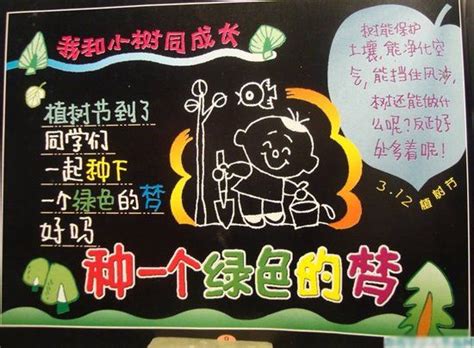 我和小树同成长
植树节到了
同学们
一起种下
一个绿色的梦
好吗
树能保护
土壤,能净化空
气,能挡住风沙,
树还能做什
么呢?反正好
处多着呢!
3.12 植树节
种一个绿色的梦
9